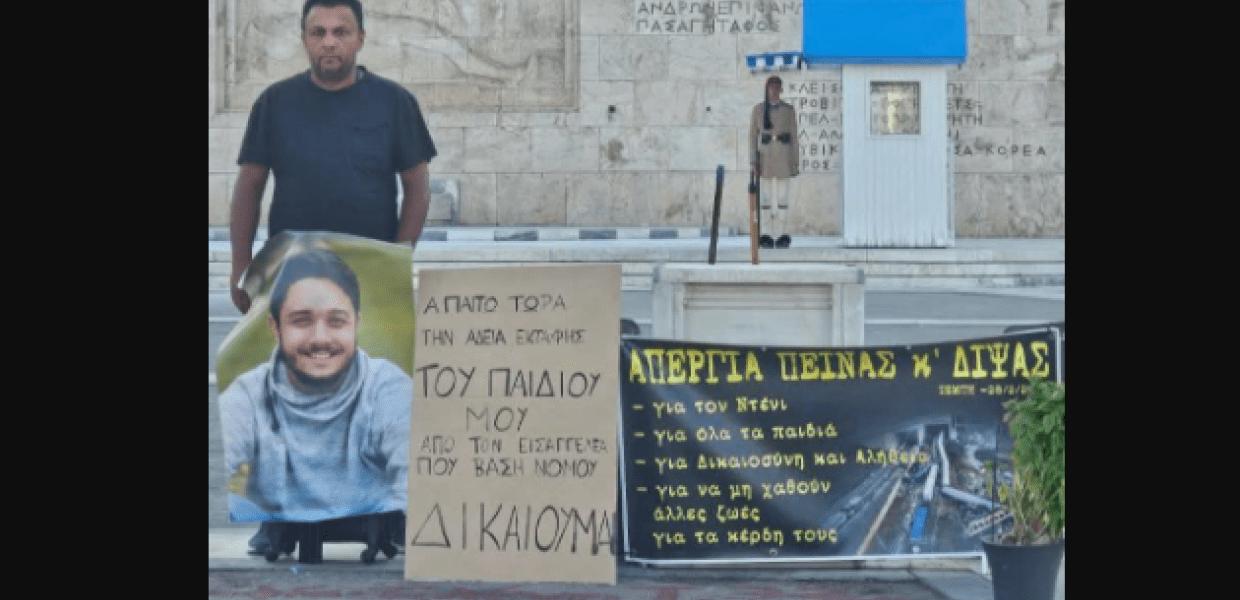 ΑΝΔΡΩΝΕΠΙΦΑΝΩ
ΠΑΣΑΓΗΤΑΦΟΣ
ΚΟΡΕΑ
ΑΠΑΙΤΩ ΤΩΡΑ
ΤΗΝ ΑΔΕΙΑ ΕΚΤΑΦΗΣ
ΤΟΥ ΠΑΙΔΙΟΥ
ΜΟΥ
ΑΠΟ ΤΟΝ ΕΙΣΑΓΓΕΛΕΑ
ΠΟΥ ΒΑΣΗ ΝΟΜΟΥ
ΔΙΚΑΙΟΥΜΑΙ
ΑΠΕΡΓΙΑ ΠΕΙΝΑΣ κ' ΔΙΨΑΣ
ΤΕΜΠΗ -28/2/
- για τον Ντένι
- για όλα τα παιδιά
- για Δικαιοσύνη και Αλήθεια
- για να μη χαθούν
άλλες ζωές
για τα κέρδη τους